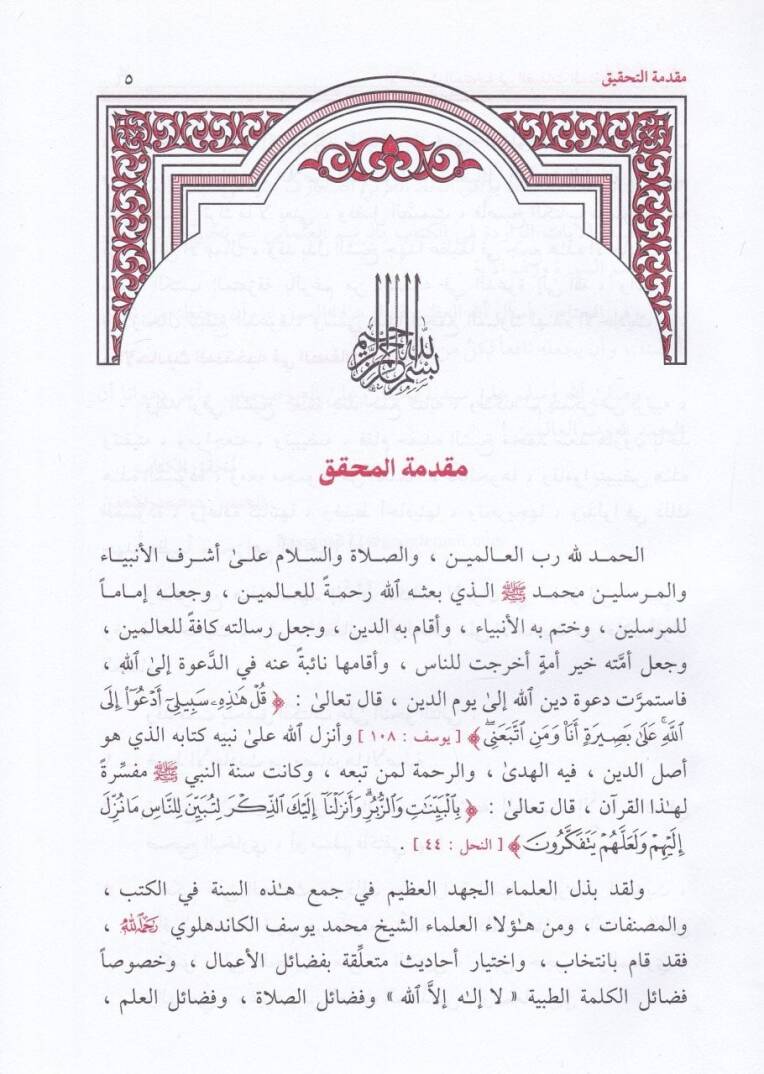 مقدمة التحقيق ٥
بسم الله الرحمن الرحيم
مقدمة المحقق
الحمد لله رب العـالميـن ، والصـلاة والسـلام علـىٰ أشـرف الأنبيـاء
والمـرسليـن محمـد ﷺ الـذي بعثـه ٱلله رحمـةً للعـالميـن ، وجعلـه إمـامـاً
للمرسلين ، وختم به الأنبياء ، وأقام به الدين ، وجعل رسالته كافةً للعالمين ،
وجعل أمّته خير أمةٍ أخرجت للناس ، وأقامها نائبةً عنه في الدَّعوة إلىٰ ٱلله ،
فاستمرَّت دعوة دين ٱلله إلىٰ يوم الدين ، قال تعالىٰ : ﴿ قُلۡ هَٰذِهِۦ سَبِيلِيٓ أَدۡعُوٓاْ إِلَى
ٱللَّهِۚ عَلَىٰ بَصِيرَةٍ أَنَا۠ وَمَنِ ٱتَّبَعَنِيۖ ﴾ [ يوسف : ١٠٨ ] وأنزل ٱلله علىٰ نبيه كتابه الذي هو
أصل الدين ، فيه الهدىٰ ، والرحمة لمن تبعه ، وكانت سنة النبي ﷺ مفسِّرةً
لهٰذا القرآن ، قال تعالىٰ : ﴿ بِٱلۡبَيِّنَٰتِ وَٱلزُّبُرِۗ وَأَنزَلۡنَآ إِلَيۡكَ ٱلذِّكۡرَ لِتُبَيِّنَ لِلنَّاسِ مَا نُزِّلَ
إِلَيۡهِمۡ وَلَعَلَّهُمۡ يَتَفَكَّرُونَ ﴾ [ النحل : ٤٤ ] .
ولقد بذل العلماء الجهد العظيم في جمع هٰذه السنة في الكتب ،
والمصنفات ، ومن هٰؤلاء العلماء الشيخ محمد يوسف الكاندهلوي رَحِمَهُ ٱللَّهُ ،
فقد قام بانتخاب ، واختيار أحاديث متعلِّقة بفضائل الأعمال ، وخصوصاً
فضائل الكلمة الطيبة « لا إلٰه إلاَّ ٱلله » وفضائل الصلاة ، وفضائل العلم ،